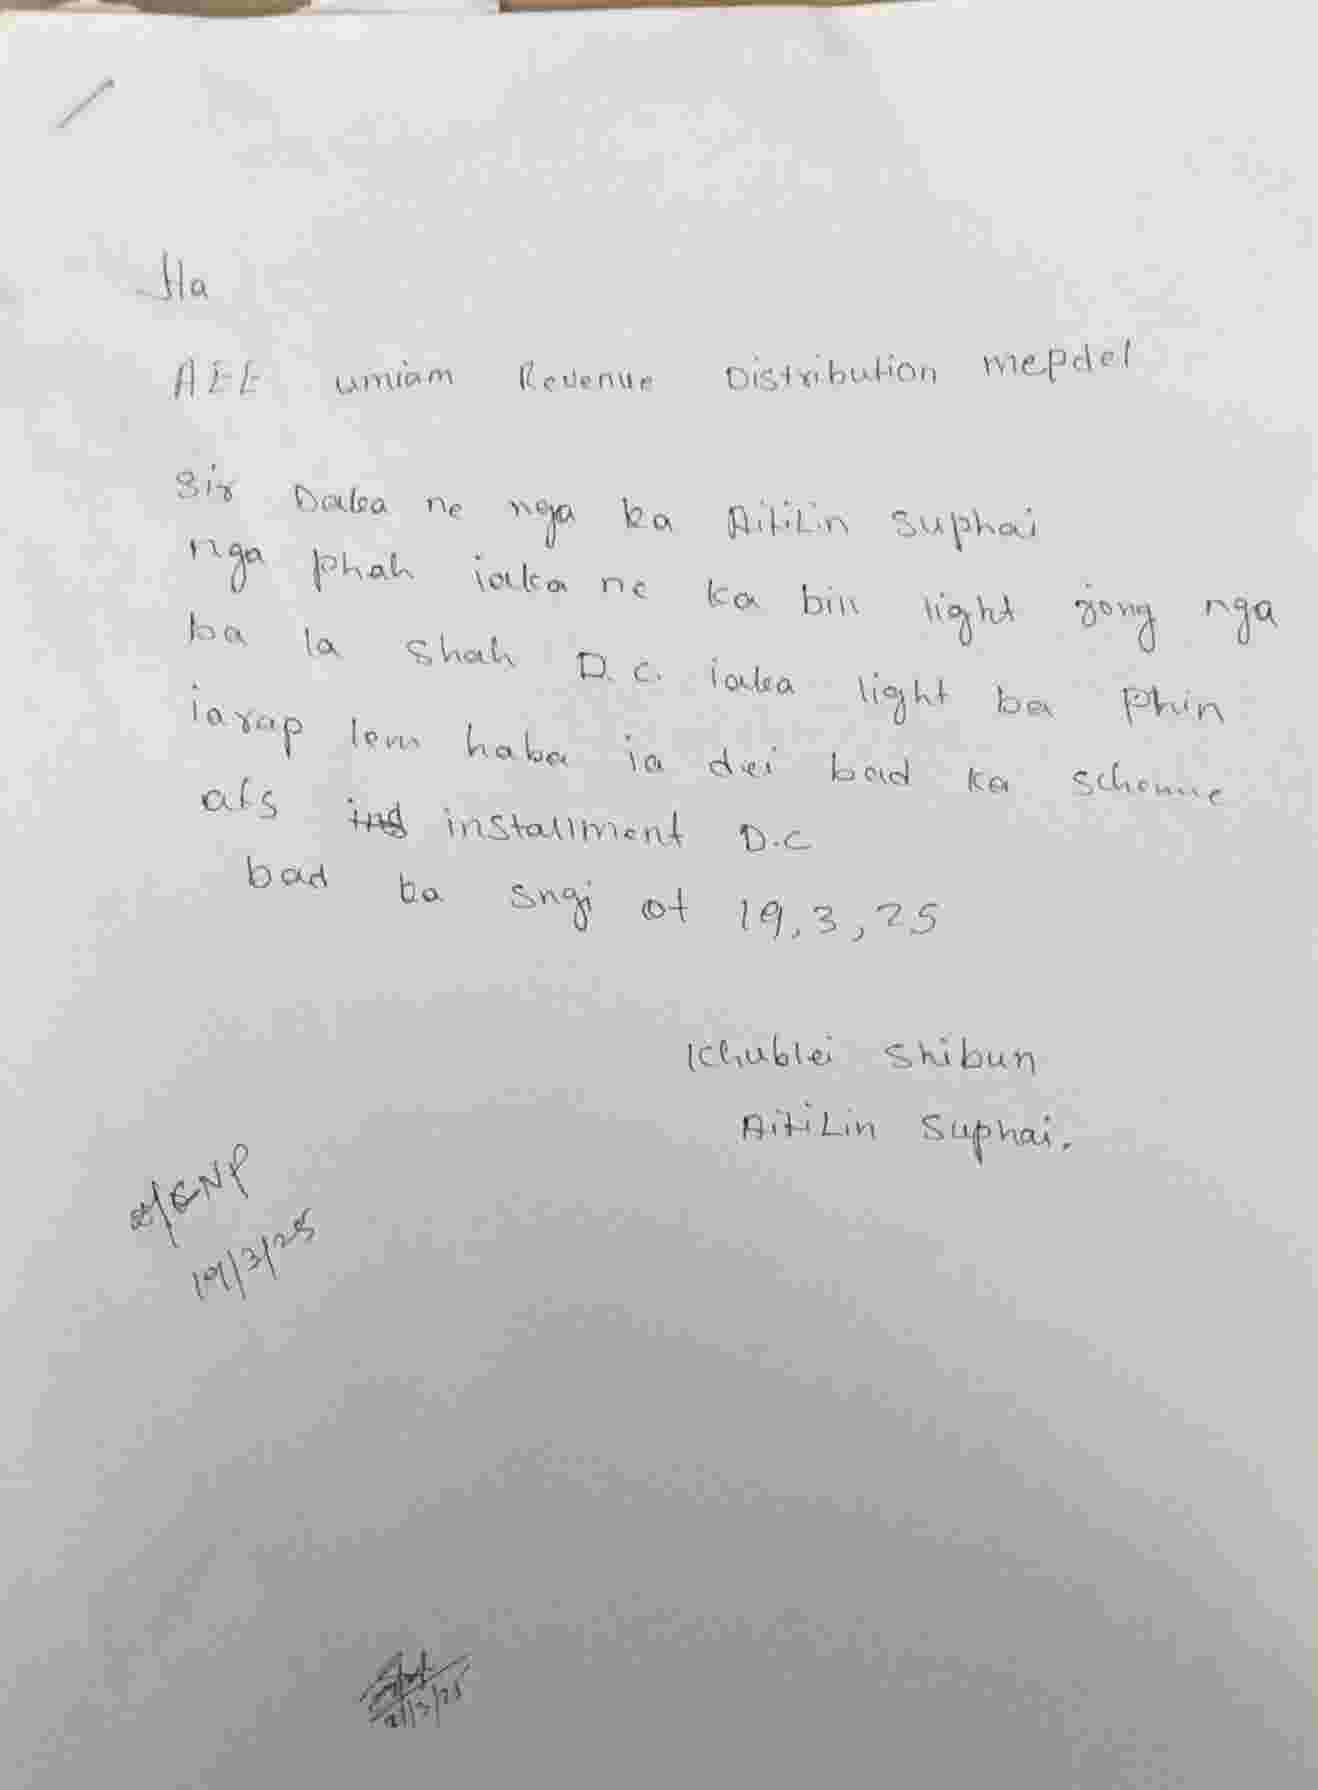 Ha
AEE umiam Revenue Distribution mepdcl
Sir Daka ne nga ka AitiLin Suphai
nga phah iaka ne ka bill light jong nga
ba la shah D.c. iaka light ba phin
iarap lem haba ia dei bad ka scheme
ats ins installment D.C
bad ka sngi ot 19,3,25
Khublei Shibun
AitiLin Suphai.
19/3/25